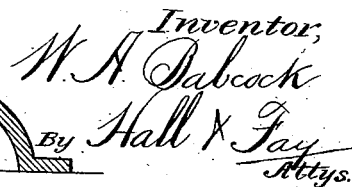 Inventor,
W. A. Babcock
By Hall & Fay
Attys.